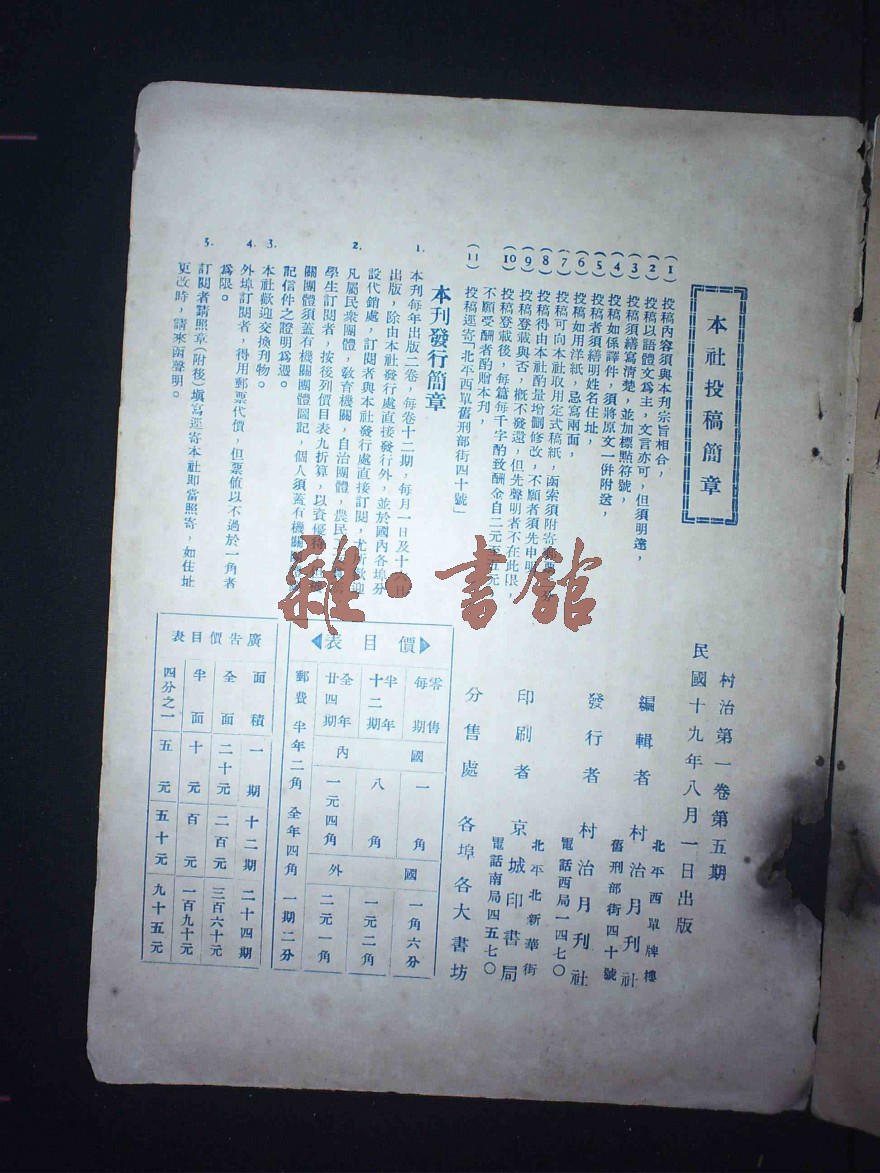 本社投稿簡章
(1) 投稿內容須與本刊宗旨相合，
(2) 投稿以語體文爲主，文言亦可，但須明達，
(3) 投稿須繕寫清楚，並加標點符號，
(4) 投稿如係譯件，須將原文一併附送，
(5) 投稿者須繕明姓名住址，
(6) 投稿如用洋紙，忌寫兩面，
(7) 投稿可向本社取用定式稿紙，函索須附寄
(8) 投稿得由本社酌量增删修改，不願者須先申明
(9) 投稿登載與否，槪不發還，但先聲明者不在此限，
(10) 投稿登載後，每篇每千字酌致酬金自二元至五元
不願受酬者酌贈本刋，
(11) 投稿逕寄「北平西單舊刑部街四十號」
本刋發行簡章
1. 本刋每年出版二卷，每卷十二期，每月一日及十六日
出版，除由本社發行處直接發行外，並於國內各埠分
設代銷處，訂閱者與本社發行處直接訂閱，尤所歡迎
2. 凡屬民衆團體，敎育機關，自治團體，農民
學生訂閱者，按後列價目表九折算，以資優待
關團體須蓋有機關團體圖記，個人須蓋有機關
配信件之證明爲遇。
3. 本社歡迎交換刋物。
4. 外埠訂閱者，得用郵票代價，但票値以不過於一角者
爲限。
5. 訂閱者請照章(附後)塡寫逕寄本社即當照寄，如住址
更改時，請來函聲明。
雜·書館
村治第一卷第五期
民國十九年八月一日出版
編輯者 村治月刊社
北平西單牌樓
舊刑部街四十號
發行者 村治月刊社
電話西局一四七〇
印刷者 京城印書局
北平北新華街
電話南局四五七〇
分售處 各埠各大書坊
價目表
零售每期 國內 一角 國外 一角六分
半年十二期 八角 一元二角
全年廿四期 一元四角 二元一角
郵費 半年二角 全年四角 一期二分
廣告價目表
面積 一期 十二期 二十四期
全面 二十元 二百元 三百六十元
半面 十元 百元 一百九十元
四分之一 五元 五十元 九十五元